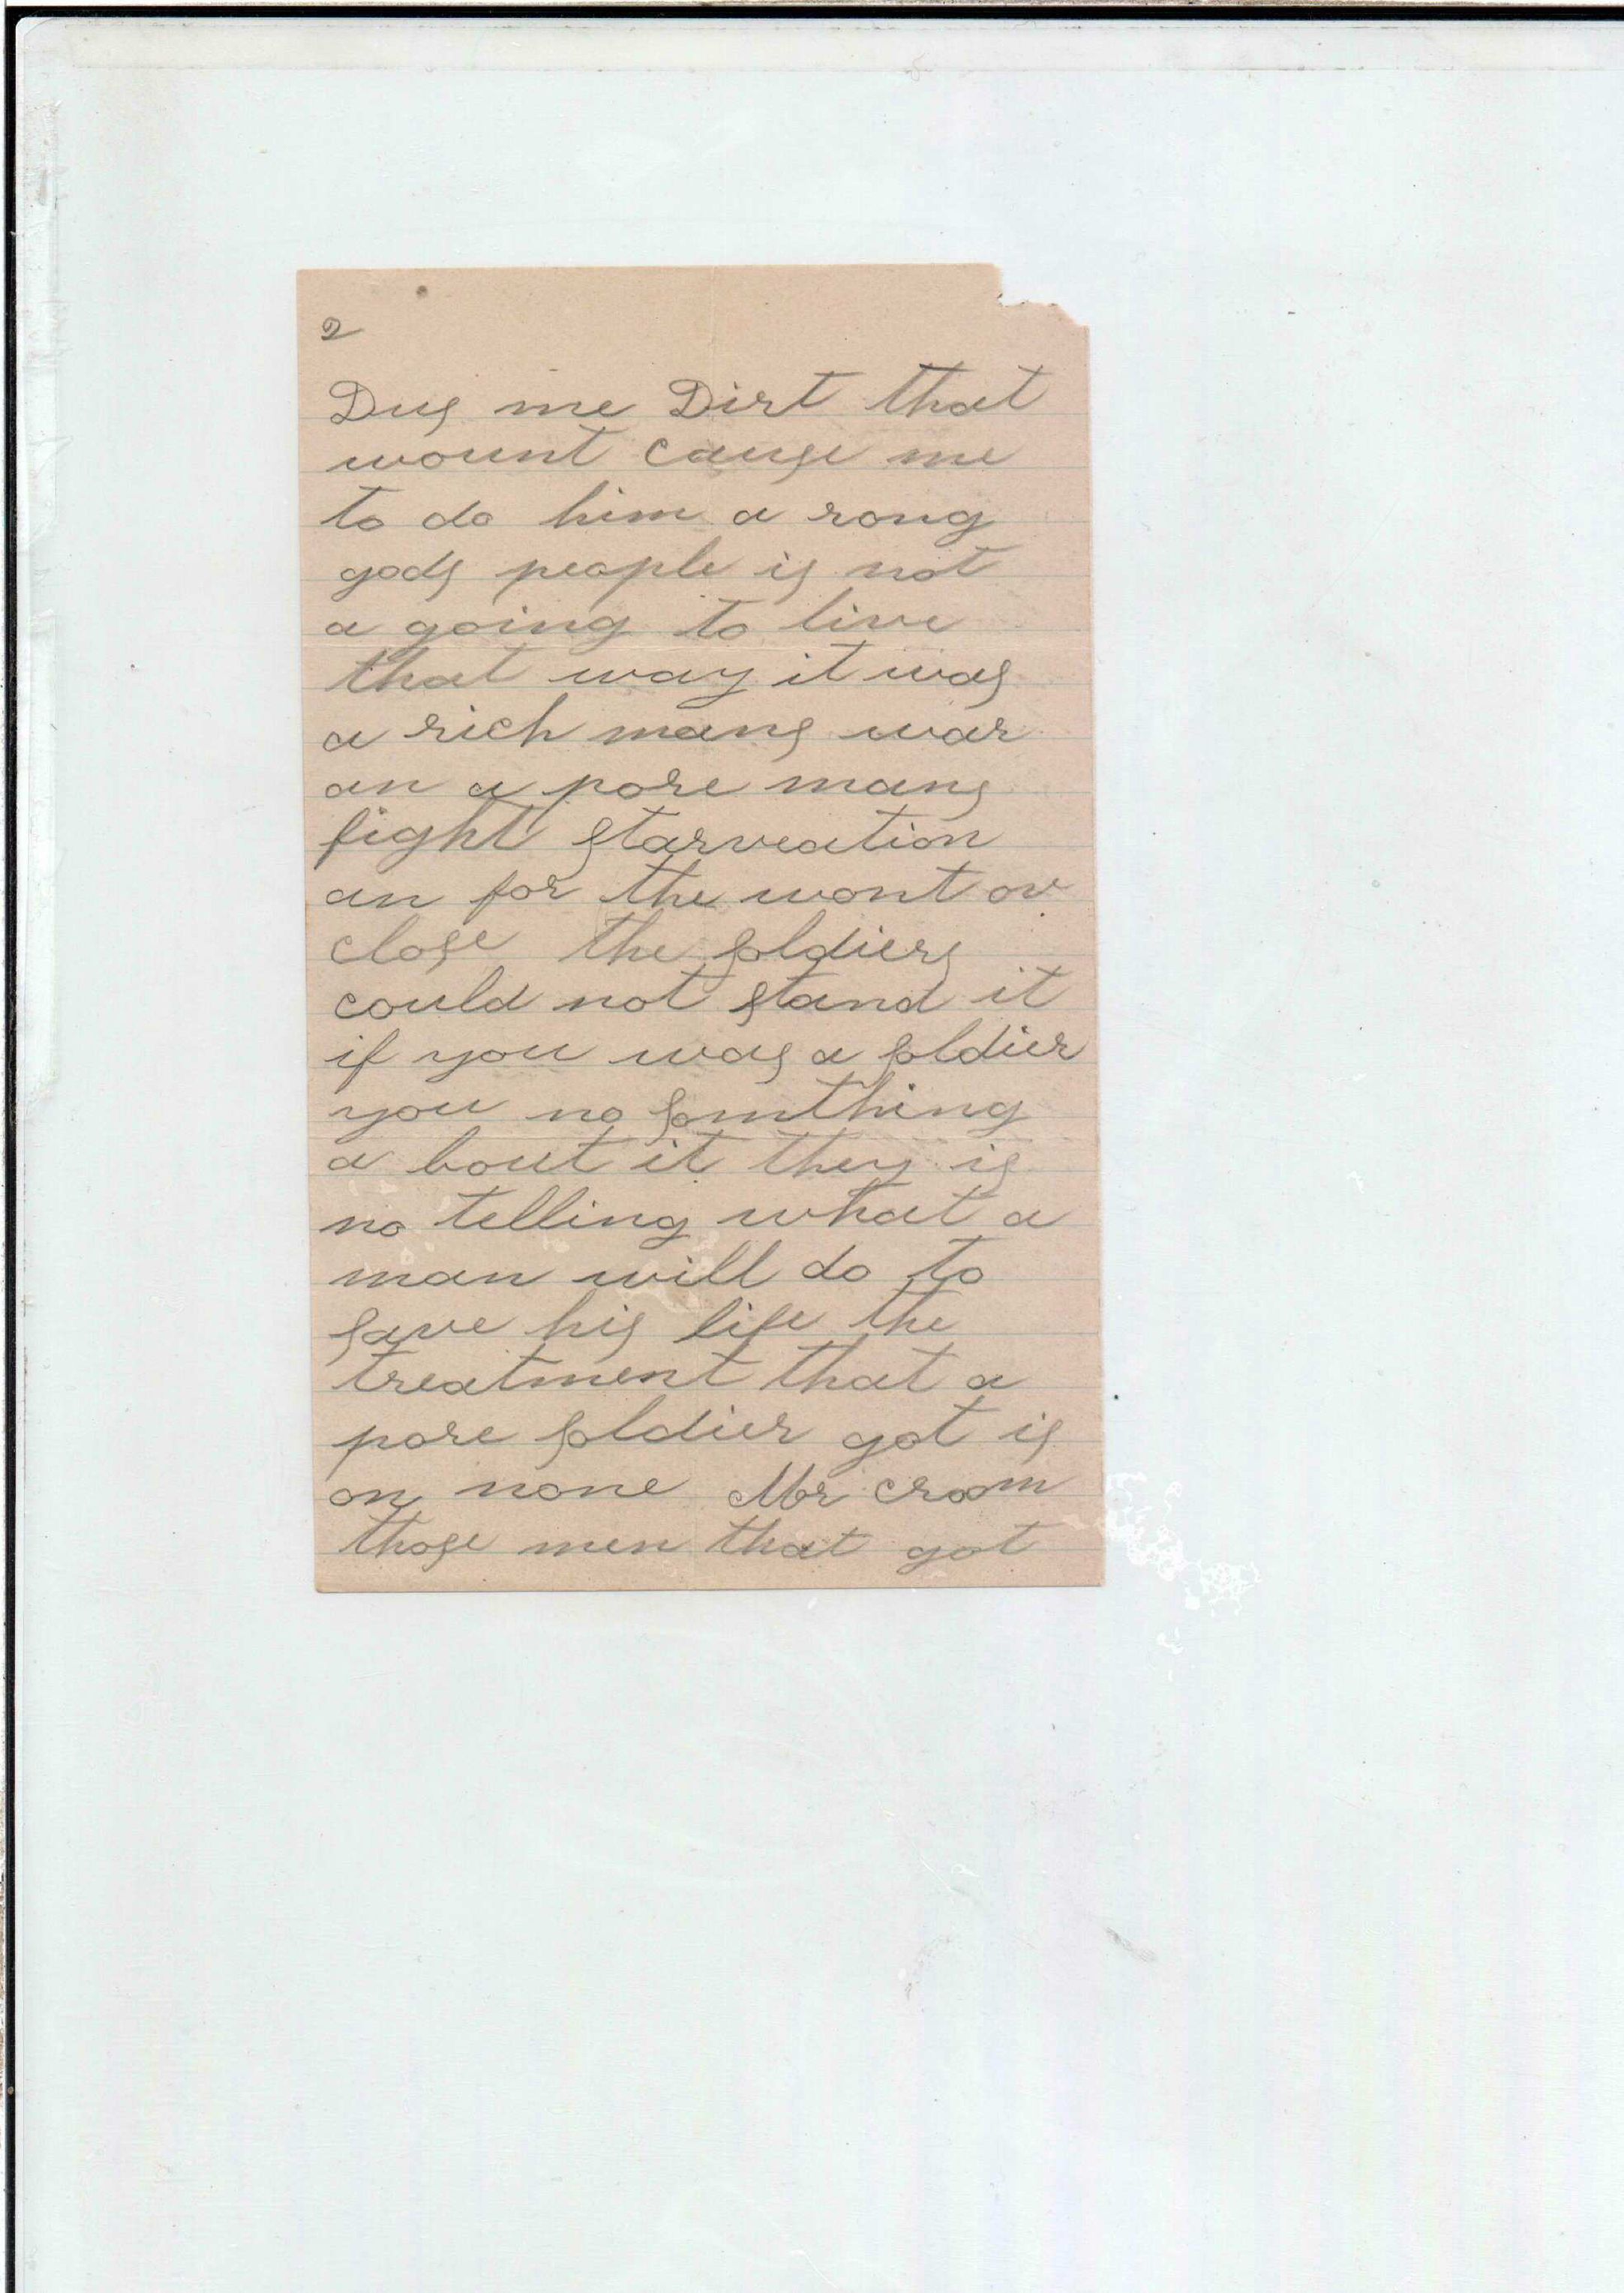 2
Dus me Dirt that
wount cause me
to do him a rong
gods people is not
a going to live
that way it was
a rich mans war
an a pore mans
fight starveation
an for the wont ov
close the soldiers
could not stand it
if you was a soldier
you no somthing
a bout it they is
no telling what a
man will do to
save his life the
treatment that a
pore soldier got is
on none Mr croom
those men that got